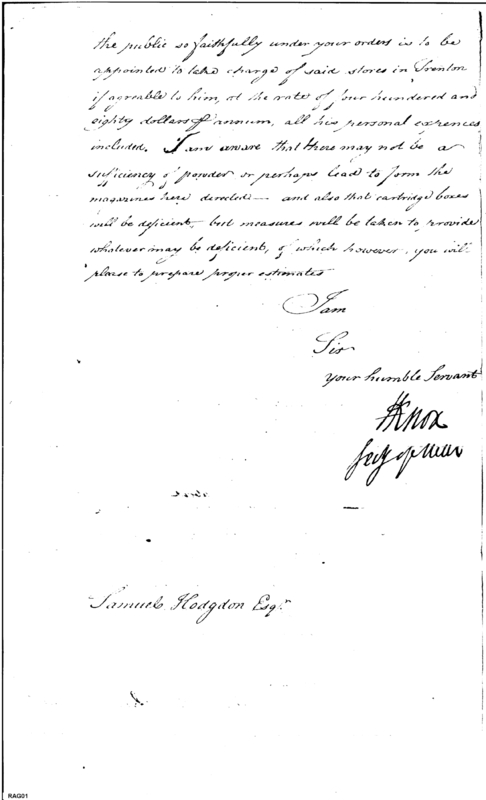 the public so faithfully under your orders is to be
appointed to take charge of said stores in Trenton
if agreable to him, at the rate of four hundred and
eighty dollars ⅌ annum, all his personal expences
included. I am aware that there may not be a
sufficiency of powder or perhaps lead to form the
magazines here directed — and also that cartridge boxes
will be deficient, but measures will be taken to provide
whatever may be deficient, of which however, you will
please to prepare proper estimates
I am
Sir
your humble Servant
HKnox
Secy of War
Samuel Hodgdon Esqr.
RAG01